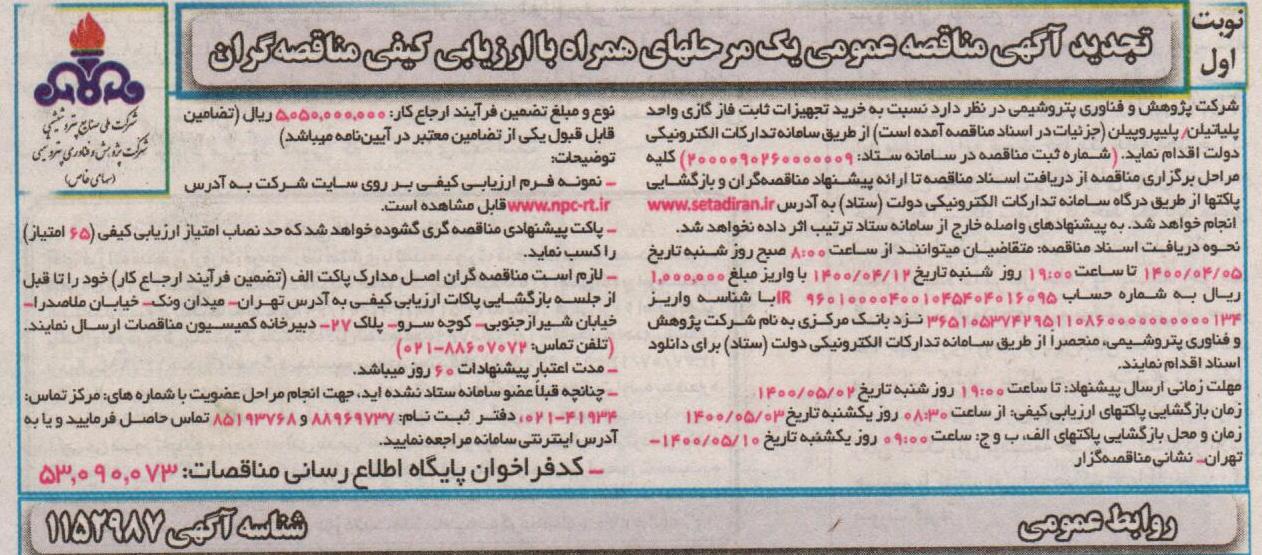 نوبت
اول
تجدید آگهی مناقصه عمومی یک مرحلهای همراه با ارزیابی کیفی مناقصه گران
شرکت ملی صنایع پتروشیمی
شرکت پژوهش و فناوری پتروشیمی
(سهامی خاص)
شرکت پژوهش و فناوری پتروشیمی در نظر دارد نسبت به خرید تجهیزات ثابت فاز گازی واحد
پلیاتیلن/ پلیپروپیلن (جزئیات در اسناد مناقصه آمده است) از طریق سامانه تدارکات الکترونیکی
دولت اقدام نماید. (شماره ثبت مناقصه در سامانه ستاد: ۲۰۰۰۰۹۰۲۶۰۰۰۰۰۰۹) کلیه
مراحل برگزاری مناقصه از دریافت اسناد مناقصه تا ارائه پیشنهاد مناقصه‌گران و بازگشایی
پاکتها از طریق درگاه سامانه تدارکات الکترونیکی دولت (ستاد) به آدرس www.setadiran.ir
انجام خواهد شد. به پیشنهادهای واصله خارج از سامانه ستاد ترتیب اثر داده نخواهد شد.
نحوه دریافت اسناد مناقصه: متقاضیان میتوانند از ساعت ۸:۰۰ صبح روز شنبه تاریخ
۱۴۰۰/۰۴/۰۵ تا ساعت ۱۹:۰۰ روز شنبه تاریخ ۱۴۰۰/۰۴/۱۲ با واریز مبلغ ۱,۰۰۰,۰۰۰
ریال به شماره حساب IR ۹۶۰۱۰۰۰۰۴۰۰۱۰۴۵۴۰۴۰۱۶۰۹۵ با شناسه واریز
۳۶۵۱۰۵۳۷۴۲۹۵۱۱۰۸۶۰۰۰۰۰۰۰۰۰۰۰۱۳۴ نزد بانک مرکزی به نام شرکت پژوهش
و فناوری پتروشیمی، منحصراً از طریق سامانه تدارکات الکترونیکی دولت (ستاد) برای دانلود
اسناد اقدام نمایند.
مهلت زمانی ارسال پیشنهاد: تا ساعت ۱۹:۰۰ روز شنبه تاریخ ۱۴۰۰/۰۵/۰۲
زمان بازگشایی پاکتهای ارزیابی کیفی: از ساعت ۰۸:۳۰ روز یکشنبه تاریخ ۱۴۰۰/۰۵/۰۳
زمان و محل بازگشایی پاکتهای الف، ب و ج: ساعت ۰۹:۰۰ روز یکشنبه تاریخ ۱۴۰۰/۰۵/۱۰-
تهران- نشانی مناقصه‌گزار
نوع و مبلغ تضمین فرآیند ارجاع کار: ۵,۰۵۰,۰۰۰,۰۰۰ ریال (تضامین
قابل قبول یکی از تضامین معتبر در آیین‌نامه میباشد)
توضیحات:
- نمونه فرم ارزیابی کیفی بر روی سایت شرکت به آدرس
www.npc-rt.ir قابل مشاهده است.
- پاکت پیشنهادی مناقصه گری گشوده خواهد شد که حد نصاب امتیاز ارزیابی کیفی (۶۵ امتیاز)
را کسب نماید.
- لازم است مناقصه گران اصل مدارک پاکت الف (تضمین فرآیند ارجاع کار) خود را تا قبل
از جلسه بازگشایی پاکات ارزیابی کیفی به آدرس تهران- میدان ونک- خیابان ملاصدرا-
خیابان شیراز جنوبی- کوچه سرو- پلاک ۲۷- دبیرخانه کمیسیون مناقصات ارسال نمایند.
(تلفن تماس: ۸۸۶۰۷۰۷۲-۰۲۱)
- مدت اعتبار پیشنهادات ۶۰ روز میباشد.
- چنانچه قبلاً عضو سامانه ستاد نشده اید، جهت انجام مراحل عضویت با شماره های: مرکز تماس:
۰۲۱-۴۱۹۳۴، دفتر ثبت نام: ۸۸۹۶۹۷۳۷ و ۸۵۱۹۳۷۶۸ تماس حاصل فرمایید و یا به
آدرس اینترنتی سامانه مراجعه نمایید.
- کدفراخوان پایگاه اطلاع رسانی مناقصات: ۵۳,۰۹۰,۰۷۳
روابط عمومی
شناسه آگهی ۱۱۵۲۹۸۷